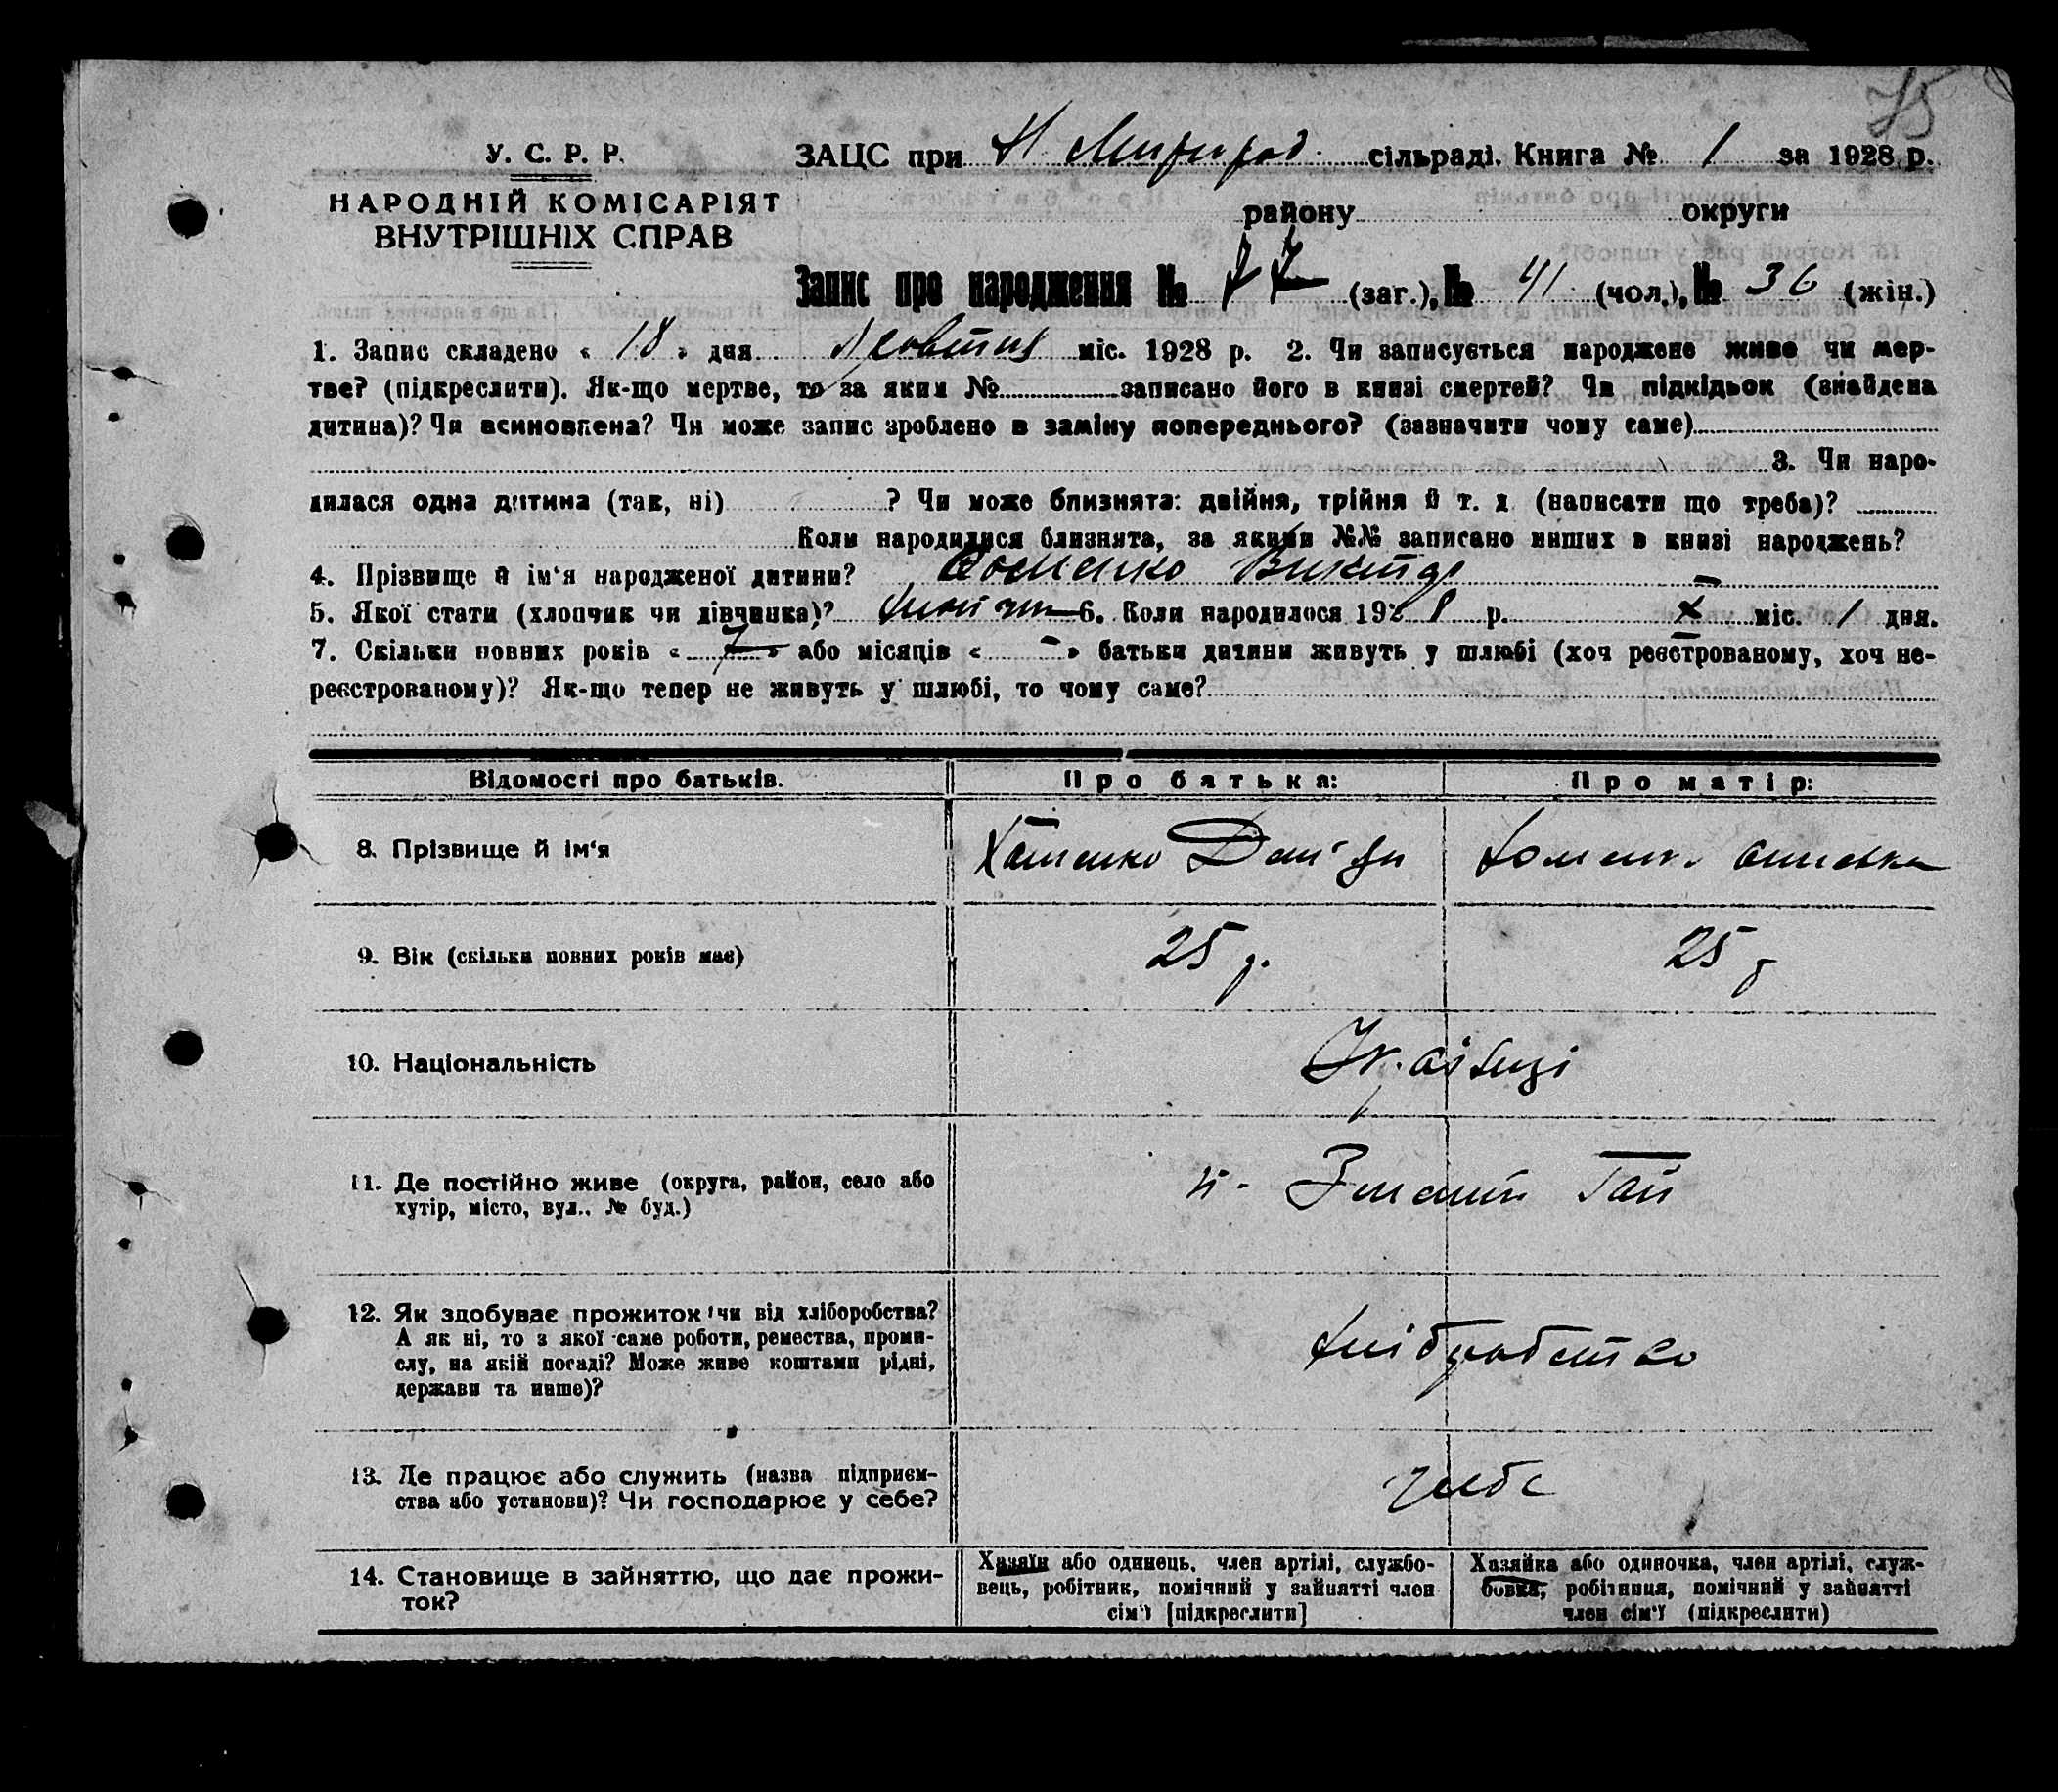 75
У. С. Р. Р.
НАРОДНІЙ КОМІСАРІЯТ
ВНУТРІШНІХ СПРАВ
ЗАЦС при Н Миргород. сільраді. Книга № 1 за 1928 р.
району округи
Запис про народження № 77 (заг.), № 41 (чол.), № 36 (жін.)
1. Запис складено « 18 » дня міс. 1928 р. 2. Чи записується народжене живе чи мер-
тве? (підкреслити). Як-що мертве, то за яким № записано його в книзі смертей? Чи підкідьок (знайдена
дитина)? Чи всиновлена? Чи може запис зроблено в заміну попереднього? (зазначити чому саме)
3. Чи наро-
дилася одна дитина (так, ні) ? Чи може близнята: двійня, трійня й т. д (написати що треба)?
Коли народилися близнята, за якими №№ записано инших в книзі народжень?
4. Прізвище й ім'я народженої дитини? Хоменко Виктор
5. Якої стати (хлопчик чи дівчинка)? 6. Коли народилося 1928 р. X міс. 1 дня.
7. Скільки повних років « 7 » або місяців « - » батьки дитини живуть у шлюбі (хоч реєстрованому, хоч не-
реєстрованому)? Як-що тепер не живуть у шлюбі, то чому саме?
Відомості про батьків. Про батька: Про матір:
8. Прізвище й ім'я Хоменко Хоменко
9. Вік (скільки повних років має) 25 р. 25 р
10. Національність Українці
11. Де постійно живе (округа, район, село або
хутір, місто, вул., № буд.) Гай
12. Як здобуває прожиток чи від хліборобства?
А як ні, то з якої саме роботи, ремества, проми-
слу, на якій посаді? Може живе коштами рідні,
держави та инше)? хліборобство
13. Де працює або служить (назва підприєм-
ства або установи)? Чи господарює у себе? у себе
14. Становище в зайняттю, що дає прожи-
ток?
Хазяїн або одинець, член артілі, службо-
вець, робітник, помічний у зайнятті член
сім'ї [підкреслити]
Хазяйка або одиночка, член артілі, служ-
бовка, робітниця, помічний у зайнятті
член сім'ї (підкреслити)